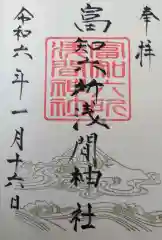 奉拝
富知六所浅間神社
富知六所
淺間神社
令和六年一月十六日